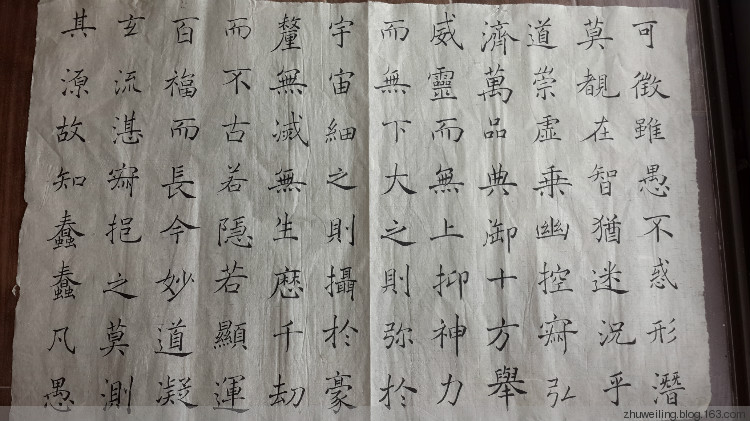 可徵雖愚不惑形潛
莫覩在智猶迷況乎
道崇虛乘幽控寂弘
濟萬品典御十方舉
威靈而無上抑神力
而無下大之則弥於
宇宙細之則攝於豪
釐無滅無生歷千劫
而不古若隱若顯運
百福而長今妙道凝
玄流湛寂挹之莫測
其源故知蠢蠢凡愚
zhuweiling.blog.163.com